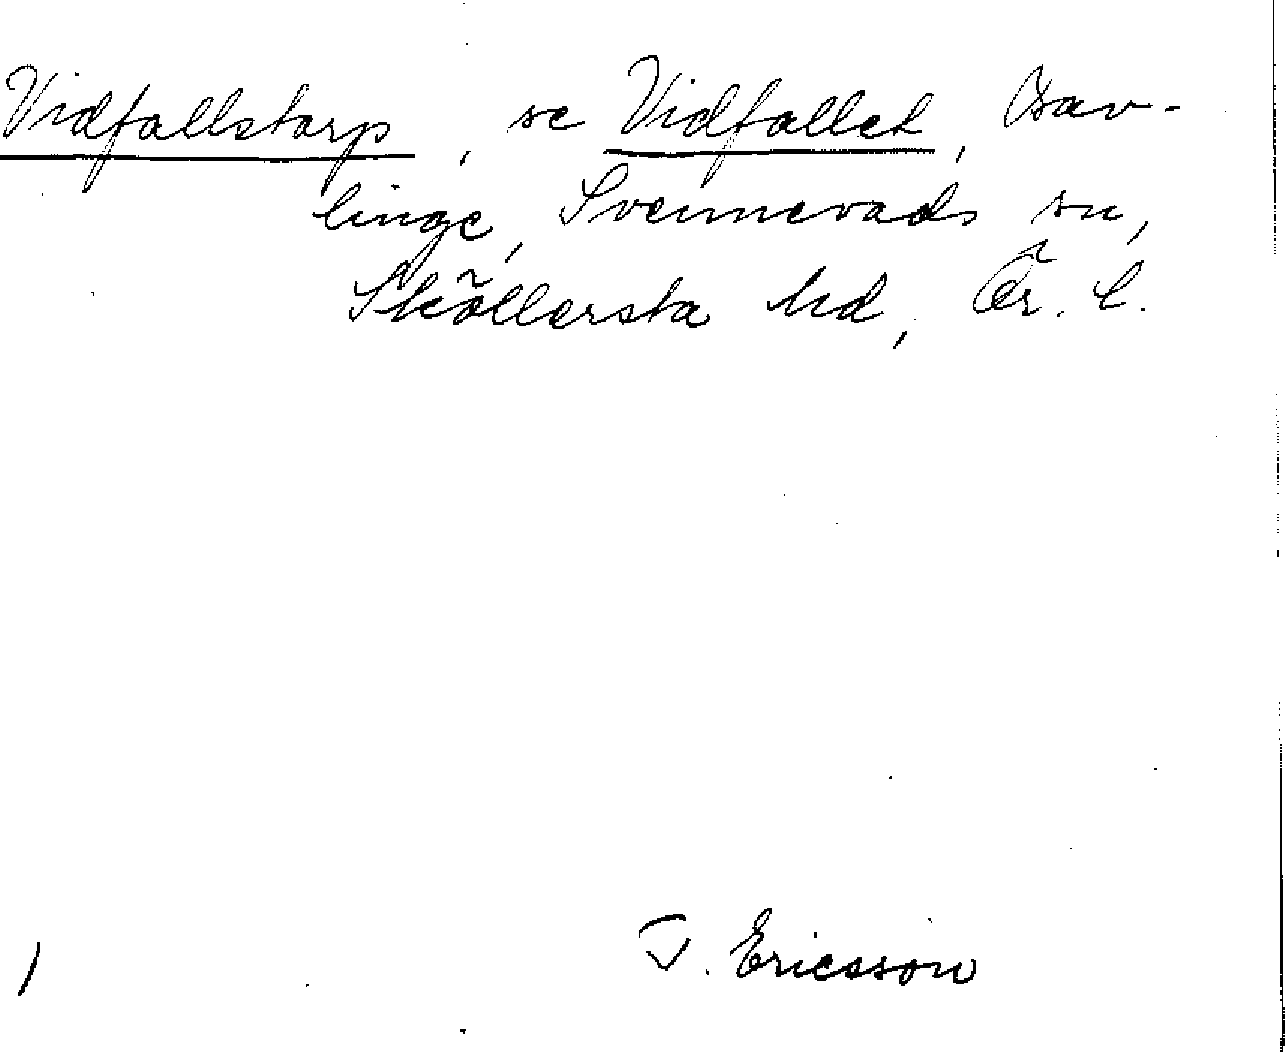 Vidfallstorp, se Vidfallet, Osav-
linge, Svennevads sn,
Sköllersta hd, Ör. l.
T. Ericsson